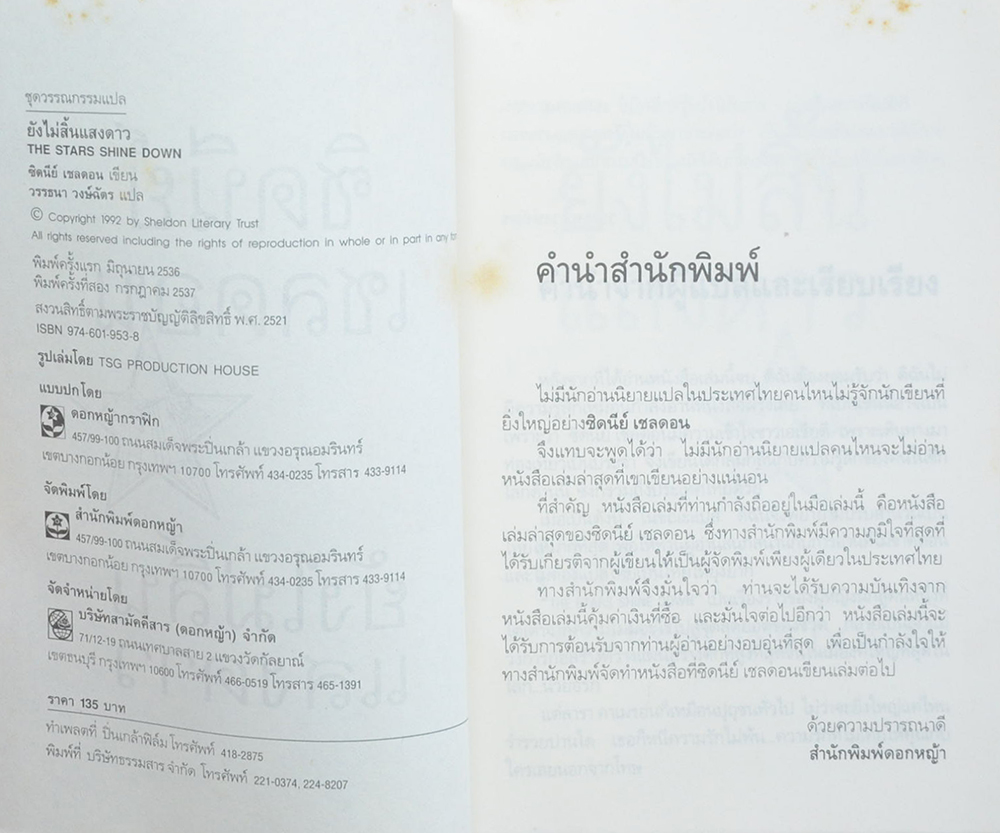 ชุดวรรณกรรมแปล
ยังไม่สิ้นแสงดาว
THE STARS SHINE DOWN
ซิดนีย์ เชลดอน เขียน
วรรธนา วงษ์ฉัตร แปล
© Copyright 1992 by Sheldon Literary Trust
All rights reserved including the rights of reproduction in whole or in part in any
พิมพ์ครั้งแรก มิถุนายน 2536
พิมพ์ครั้งที่สอง กรกฎาคม 2537
สงวนสิทธิ์ตามพระราชบัญญัติลิขสิทธิ์ พ.ศ. 2521
ISBN 974-601-953-8
รูปเล่มโดย TSG PRODUCTION HOUSE
แบบปกโดย
ดอกหญ้ากราฟิก
457/99-100 ถนนสมเด็จพระปิ่นเกล้า แขวงอรุณอมรินทร์
เขตบางกอกน้อย กรุงเทพฯ 10700 โทรศัพท์ 434-0235 โทรสาร 433-9114
จัดพิมพ์โดย
สำนักพิมพ์ดอกหญ้า
457/99-100 ถนนสมเด็จพระปิ่นเกล้า แขวงอรุณอมรินทร์
เขตบางกอกน้อย กรุงเทพฯ 10700 โทรศัพท์ 434-0235 โทรสาร 433-9114
จัดจำหน่ายโดย
บริษัทสามัคคีสาร (ดอกหญ้า) จำกัด
71/12-19 ถนนเทศบาลสาย 2 แขวงวัดกัลยาณ์
เขตธนบุรี กรุงเทพฯ 10600 โทรศัพท์ 466-0519 โทรสาร 465-1391
ราคา 135 บาท
ทำเพลตที่ ปิ่นเกล้าฟิล์ม โทรศัพท์ 418-2875
พิมพ์ที่ บริษัทธรรมสาร จำกัด โทรศัพท์ 221-0374, 224-8207
คำนำสำนักพิมพ์
ไม่มีนักอ่านนิยายแปลในประเทศไทยคนไหนไม่รู้จักนักเขียนที่
ยิ่งใหญ่อย่างซิดนีย์ เชลดอน
จึงแทบจะพูดได้ว่า ไม่มีนักอ่านนิยายแปลคนไหนจะไม่อ่าน
หนังสือเล่มล่าสุดที่เขาเขียนอย่างแน่นอน
ที่สำคัญ หนังสือเล่มที่ท่านกำลังถืออยู่ในมือเล่มนี้ คือหนังสือ
เล่มล่าสุดของซิดนีย์ เชลดอน ซึ่งทางสำนักพิมพ์มีความภูมิใจที่สุดที่
ได้รับเกียรติจากผู้เขียนให้เป็นผู้จัดพิมพ์เพียงผู้เดียวในประเทศไทย
ทางสำนักพิมพ์จึงมั่นใจว่า ท่านจะได้รับความบันเทิงจาก
หนังสือเล่มนี้คุ้มค่าเงินที่ซื้อ และมั่นใจต่อไปอีกว่า หนังสือเล่มนี้จะ
ได้รับการต้อนรับจากท่านผู้อ่านอย่างอบอุ่นที่สุด เพื่อเป็นกำลังใจให้
ทางสำนักพิมพ์จัดทำหนังสือที่ซิดนีย์ เชลดอนเขียนเล่มต่อไป
ด้วยความปรารถนาดี
สำนักพิมพ์ดอกหญ้า